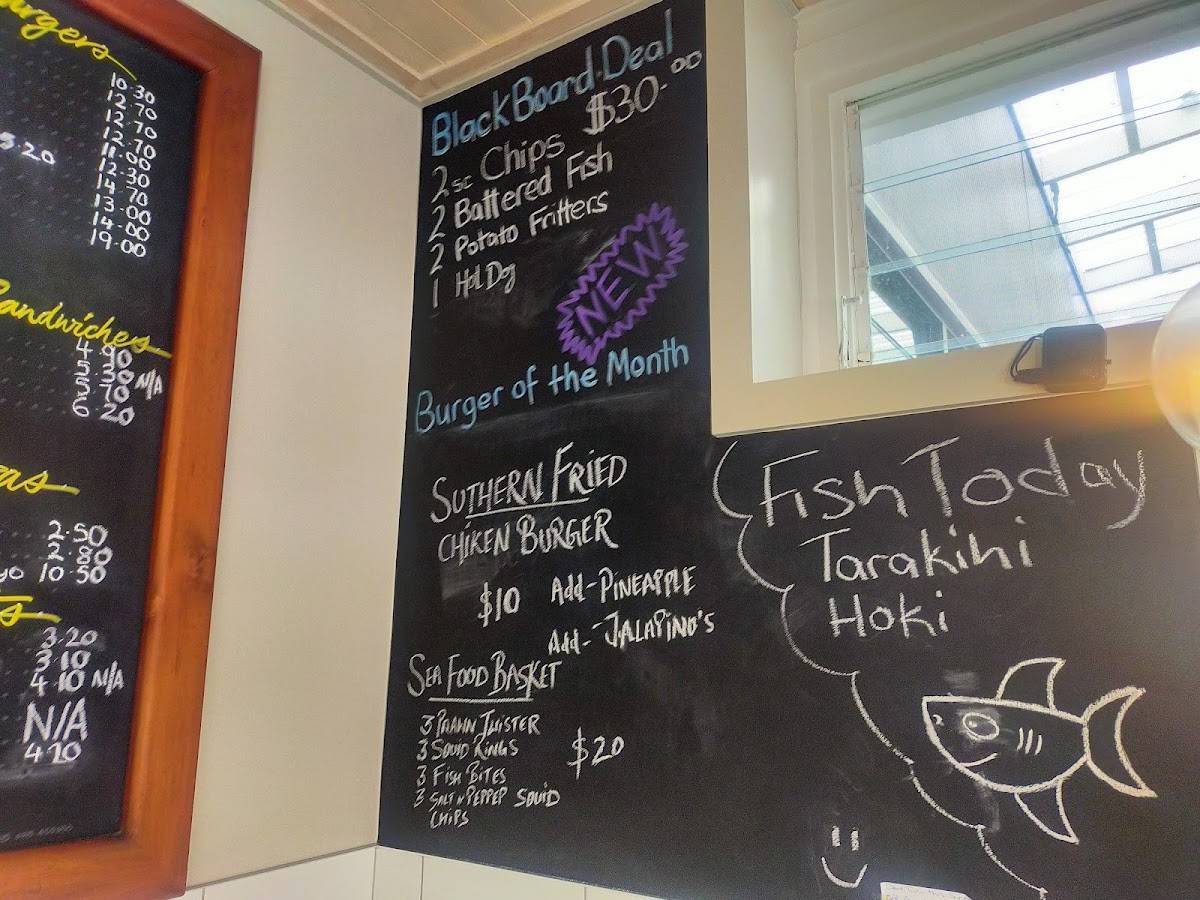 10.30
12.70
12.70
12.70
11.00
5.20
12.30
14.70
13.00
14.00
19.00
Sandwiches
4.90
5.30 N/A
5.70
6.20
2.50
2.80
10.50
3.20
3.10
4.10 N/A
N/A
4.20
Black Board Deal
$30.00
2 sc Chips
2 Battered Fish
2 Potato Fritters
1 Hot Dog
NEW
Burger of the Month
SUTHERN FRIED
CHIKEN BURGER
$10 Add-PINEAPPLE
Add-JALAPINO'S
SEA FOOD BASKET
3 PRAWN TWISTER
3 SQUID RINGS
$20
3 FISH BITES
3 SALT N PEPPEP SQUID
CHIPS
Fish Today
Tarakihi
Hoki